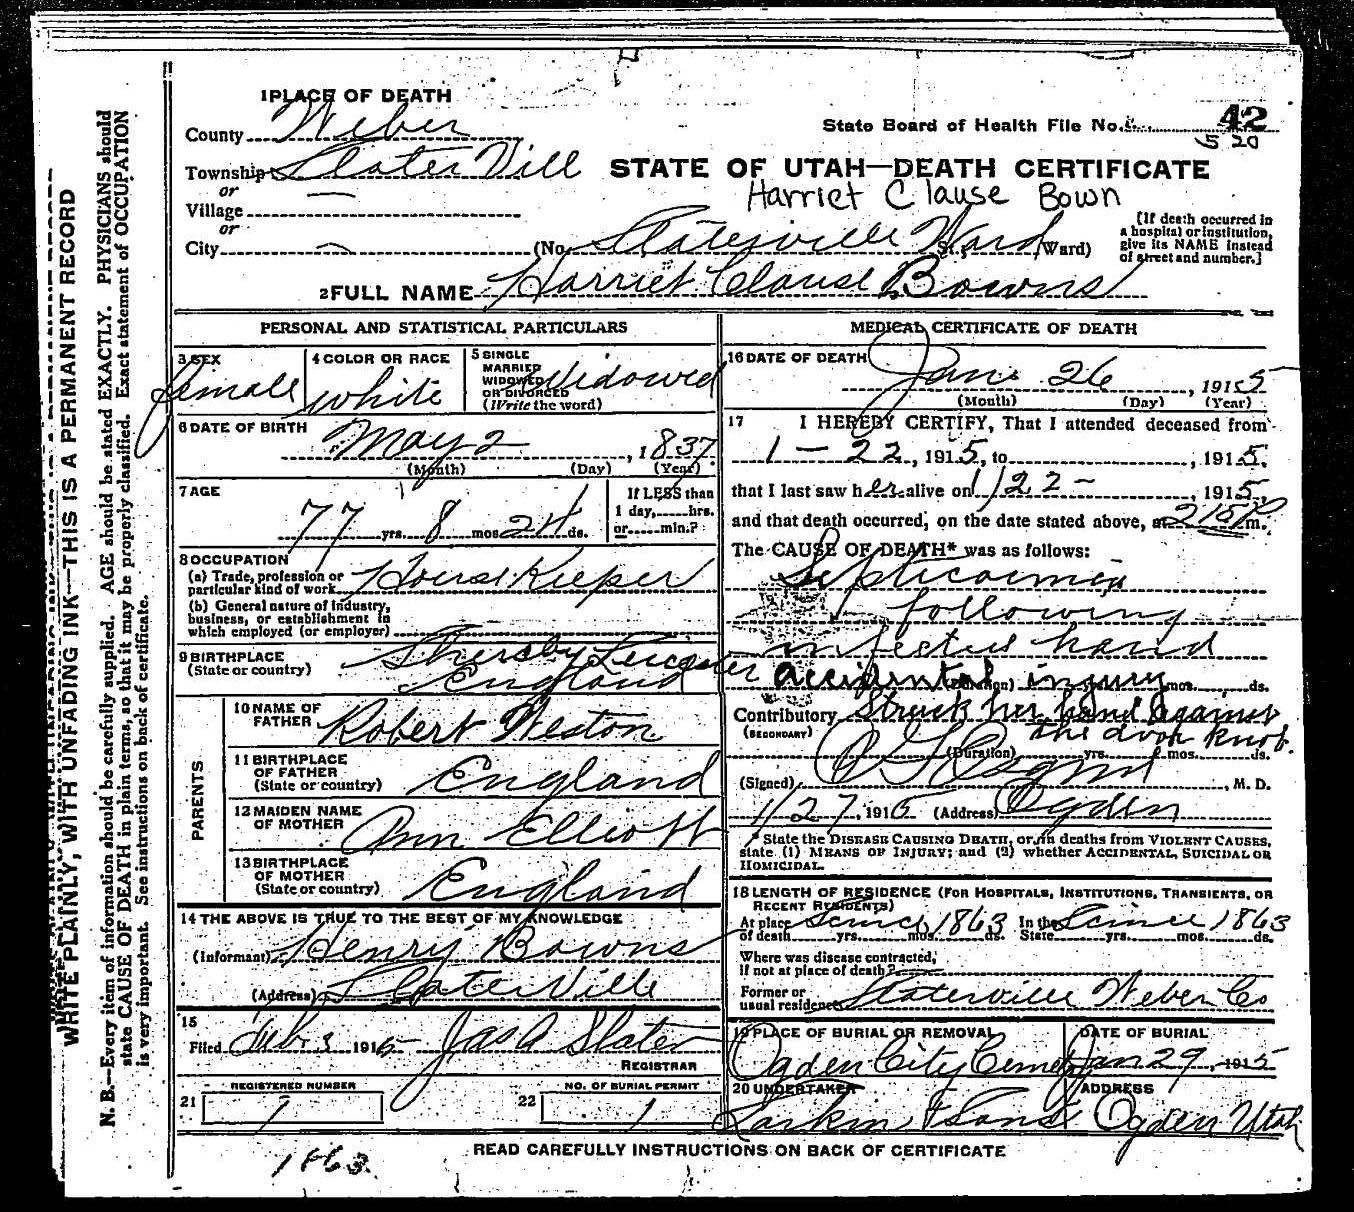 1 PLACE OF DEATH
County Weber
State Board of Health File No. 42
5 20
Township Slater Vill
STATE OF UTAH—DEATH CERTIFICATE
or
Harriet Clause Bown
Village
or
City (No. Slatersville Ward St., Ward)
[If death occurred in
a hospital or institution,
give its NAME instead
of street and number.]
2 FULL NAME Harriet Clause Bowns
PERSONAL AND STATISTICAL PARTICULARS
3 SEX female
4 COLOR OR RACE white
5 SINGLE
MARRIED
WIDOWED
OR DIVORCED
(Write the word)
Widowed
6 DATE OF BIRTH
May 2, 1837
(Month) (Day) (Year)
7 AGE
77 yrs. 8 mos. 24 ds.
If LESS than
1 day, hrs.
or min.?
8 OCCUPATION
(a) Trade, profession or
particular kind of work House Keeper
(b) General nature of industry,
business, or establishment in
which employed (or employer)
9 BIRTHPLACE
(State or country)
Leicester
England
PARENTS
10 NAME OF
FATHER Robert Weston
11 BIRTHPLACE
OF FATHER
(State or country) England
12 MAIDEN NAME
OF MOTHER Ann Elliott
13 BIRTHPLACE
OF MOTHER
(State or country) England
14 THE ABOVE IS TRUE TO THE BEST OF MY KNOWLEDGE
(Informant) Henry Bowns
(Address) SlaterVille
15
Filed Feb 3 1915 Jas A Slater
REGISTRAR
REGISTERED NUMBER
21 1
NO. OF BURIAL PERMIT
22 1
MEDICAL CERTIFICATE OF DEATH
16 DATE OF DEATH
Jan 26, 1915
(Month) (Day) (Year)
17 I HEREBY CERTIFY, That I attended deceased from
1 — 22, 1915, to , 191 5,
that I last saw her alive on 1/22 -, 1915,
and that death occurred, on the date stated above, at 215 P m.
The CAUSE OF DEATH* was as follows:
Septicaemia
following
infectus hand
accidental injury
(Duration) yrs. mos. ds.
Contributory Struck her hand against
(SECONDARY) the door knob.
(Duration) yrs. mos. ds.
(Signed) , M. D.
1/27, 1915 (Address) Ogden
* State the DISEASE CAUSING DEATH, or, in deaths from VIOLENT CAUSES,
state (1) MEANS OF INJURY; and (2) whether ACCIDENTAL, SUICIDAL OR
HOMICIDAL.
18 LENGTH OF RESIDENCE (FOR HOSPITALS, INSTITUTIONS, TRANSIENTS, OR
RECENT RESIDENTS)
At place since 1863 In the Since 1863
of death yrs. mos. ds. State yrs. mos. ds.
Where was disease contracted,
if not at place of death?
Former or
usual residence Slaterville Weber Co
19 PLACE OF BURIAL OR REMOVAL
Ogden City Cemet
DATE OF BURIAL
Jan 29, 1915
20 UNDERTAKER
Larkin & Sons
ADDRESS
Ogden Utah
READ CAREFULLY INSTRUCTIONS ON BACK OF CERTIFICATE
1863.
WRITE PLAINLY, WITH UNFADING INK—THIS IS A PERMANENT RECORD
N. B.—Every item of information should be carefully supplied. AGE should be stated EXACTLY. PHYSICIANS should
state CAUSE OF DEATH in plain terms, so that it may be properly classified. Exact statement of OCCUPATION
is very important. See instructions on back of certificate.